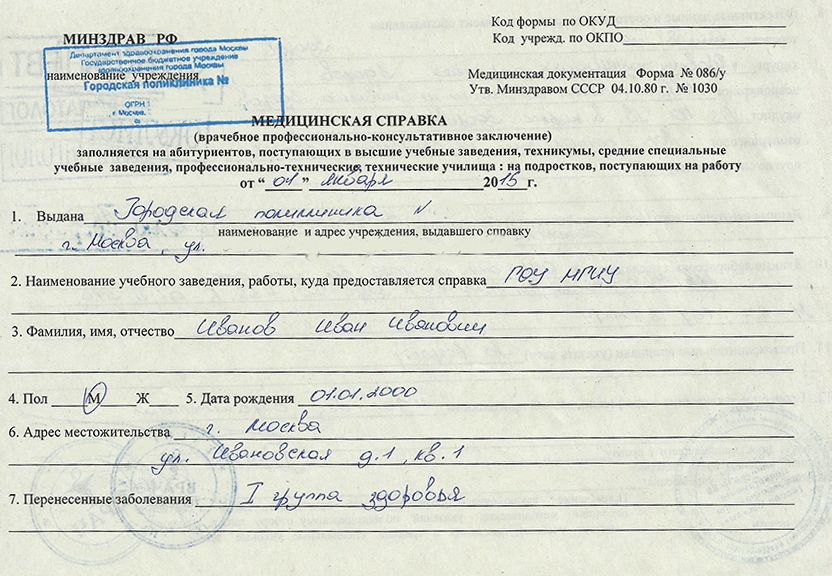 Код формы по ОКУД
Код учрежд. по ОКПО
МИНЗДРАВ РФ
Департамент здравоохранения города Москвы
Государственное бюджетное учреждение
здравоохранения города Москвы
Городская поликлиника №
ОГРН 1
г. Москва,
наименование учреждения
Медицинская документация Форма № 086/у
Утв. Минздравом СССР 04.10.80 г. № 1030
МЕДИЦИНСКАЯ СПРАВКА
(врачебное профессионально-консультативное заключение)
заполняется на абитуриентов, поступающих в высшие учебные заведения, техникумы, средние специальные
учебные заведения, профессионально-технические, технические училища : на подростков, поступающих на работу
от “ 01 ” января 2015 г.
1. Выдана Городская поликлиника №
наименование и адрес учреждения, выдавшего справку
г. Москва, ул.
2. Наименование учебного заведения, работы, куда предоставляется справка ГОУ
3. Фамилия, имя, отчество Иванов Иван Иванович
4. Пол М Ж 5. Дата рождения 01.01.2000
6. Адрес местожительства г. Москва
ул. Ивановская д.1, кв.1
7. Перенесенные заболевания I группа здоровья